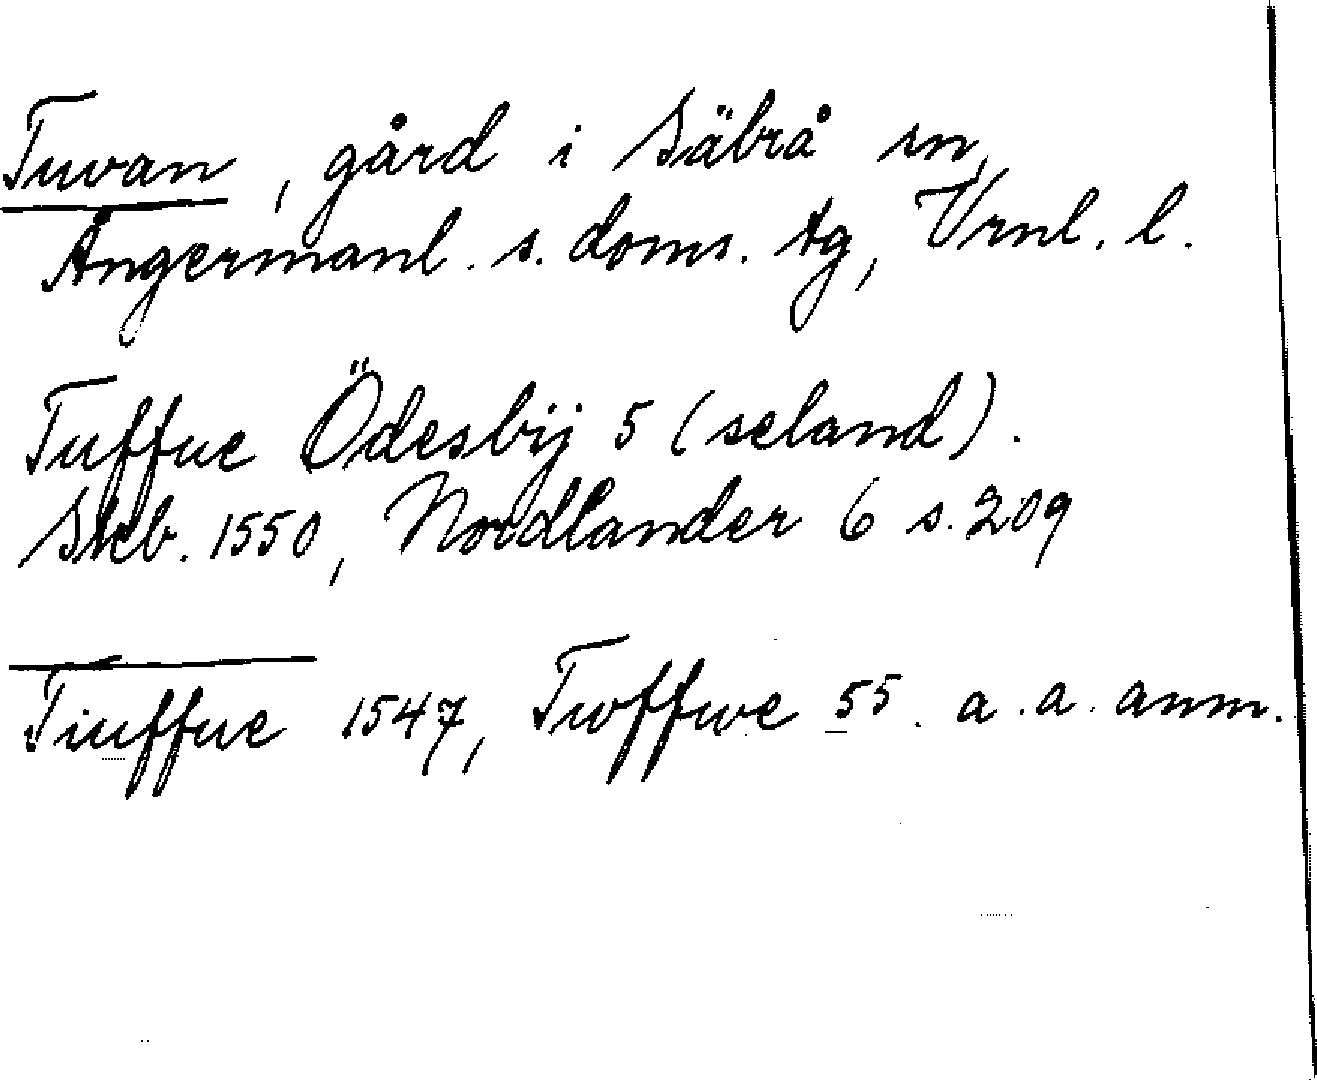 Tuvan, gård i Säbrå sn,
Ångermanl. s. doms. tg, Vrnl. l.
Tuffue Ödesbÿ 5 (seland).
Skb. 1550, Nordlander 6 s. 209
Tiuffue 1547, Twffwe 55. a. a. anm.